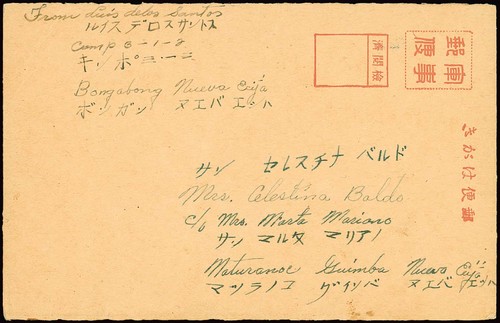 From Luis delos Santos
ルイス デロスサントス
Camp 3-1-2
キャンプ 三・一・二
Bongabong Nueva Ecija
ボンガボン ヌエバ エシハ
検閲済
軍事
郵便
きがは便郵
サン セレスチナ バルド
Mrs. Celestina Baldo
c/o Mrs. Marta Mariano
サン マルタ マリアノ
Maturanoc Guimba Nueva Ecija
マツラノク ギインバ ヌエバ エシハ